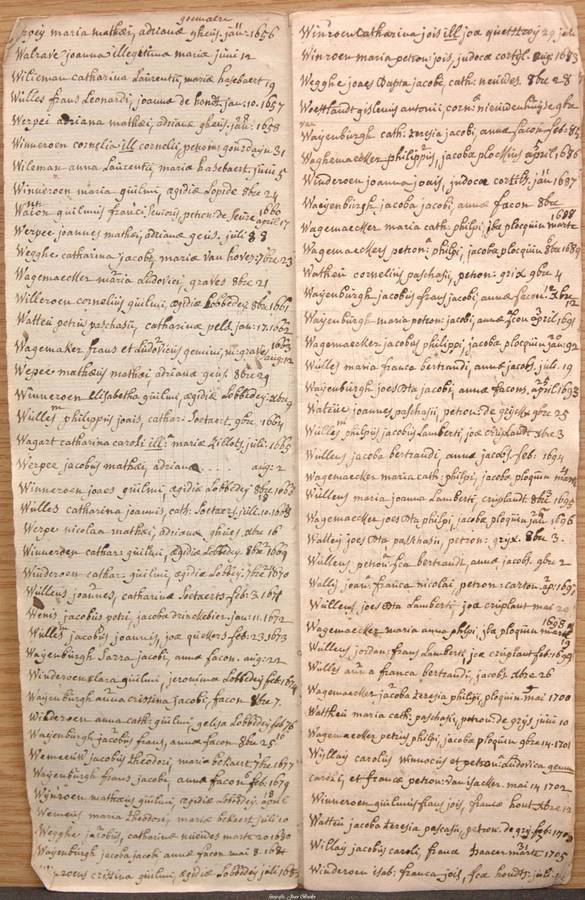 goemaere
maria mathæi, adrianæ gheus. jan: 1656
Walrave joanna illegitima mariæ junii 12
Wileman catharina Laurentii, mariæ hasebaert 19
Wulles frans Leonardi, joannæ de hondt. jan: 10. 1657
Werpei adriana mathæi, adrianæ gheus. jan: 1658
Winneroen cornelia ill. cornelii, petronæ gourdayn 31
Wileman anna Laurentii, mariæ hasebaert. junii 5
Winneroen maria guilmi, ægidiæ Lopide 8bre 24
1660
guilmus april 17
Werpei joannes mathæi, adrianæ geus. juli 8
Wegghe catharina jacobi, mariæ van hove: 7bre 23
Wagemaecker maria Ludovici, graves 8bre 21
Willeroen cornelius guilmi, ægidiæ Lobbedey 8bre 1661
Watteu petrus paschasii, catharinæ peld. jan: 17. 1662
Wagemaker frans et Ludovicus gemini,
Wepei mathæus mathæi, adrianæ geus 8bre 29
Winneroen elisabetha guilmi, ægidiæ Lobbedey: xbre 9
Wulles philippus joais, cathar: Soetaert. 9bre 1664
Wagart catharina caroli ill: mariæ Killots, juli: 1665
Werpei jacobus mathæi, adrianæ . . . . aug: 2
Winneroen joaes guilmi, ægidiæ Lobbedey 8bre
Wulles catharina joannis, cath: Soetaers. juli. 10.
Werpe nicolas mathæi, adrianæ ghies. xbre 16
Winnerden cathar: guilmi, ægidiæ Lobbedey. 8bre 1669
Winderoen cathar: guilmi, ægidiæ Lobbey: 7bre 1670
Wullens joannes, catharinæ Soetaerts feb: 3. 1671
Wenis jacobus petri, jacobæ drinckebier jan: 11. 1672
Wulles jacobus joannis, joæ quekers feb: 23. 1673
Wayenburgh Sarra jacobi, annæ facon. aug: 22
Winderoen clara guilmi, jeronimæ Lobbedey feb: 1674
Wayenburgh anna cristina jacobi, facon 8bre 7.
Winderoen anna cath: guilmi gelsa Lobbedey feb 76
Wayenburgh jacobus frans, annæ facon 8bre 25
Wemeeuw jacobus theodori, maria bekaert 7bre 1677
Wayenburgh frans jacobi, annæ facon feb: 1679
Wynroen mathæus guilmi, ægidiæ Lobbedey. april
Wemeus maria theodori, mariæ bekert juli 10
Wegghe jacobus, catharinæ nieuves marte 20 1680
Wayenburgh jacoba jacobi annæ facon mai 8. 1684
cristina guilmi, ægidiæ Lobbedey juli 1683
Winroen catharina jois ill joæ quetstroy 29
Winroen maria petron: jois, judocæ cortyl. aug: 1683
Wegghe joaes Bapta jacobi, cath: neuves. 8bre 28
Woestlandt gislenus antonii, corn: nieuwenhuyse 9bre
Wayenburgh cath: teresia jacobi, annæ facon feb: 86
Waghemaecker philippus, jacobæ plockius april 1686
Winderoen joanna joais, judocæ cortyl. jan 1687
Wayenburgh jacoba jacobi, annæ facon 8bre
1688
Wagemaecker maria cath: philpi, jbæ plocquin marte
Wagemaeckers petron: philpi, jacoba plocquin 8bre 1689
Watheu cornelius paschasii, petron: grix 9bre 4
Wayenburgh jacobus frans jacobi, annæ facon: xbre
Wayenburgh maria petron: jacobi, annæ facon april 1691
Wagemaecker jacobus philippi, jacobæ plocquin jan: 92
Wulles maria franca bertrandi, annæ jacobs. juli. 19
Wayenburgh joes Bta jacobi, annæ facons. april 1693
Watteie joannes paschasii, petron: de gryse 9bre 25
Wulles philpus jacobus Lamberti joæ cruplandt xbre 3
Wullens jacoba bertrandi, annæ jacobs. feb: 1694
Wagemaecker maria cath: philpi, jacobæ ploquin
Wullens maria joanna Lamberti, cruplandt. 8bre 1695
Wagemaecker joes Bta philpi, jacobæ ploquin jan 1696
Wattey joes Bta paschasii, petron: gryx. 8bre 3.
Wullens, petron: fca bertrandi, annæ jacobs. 9bre 2
Wallej joan: franca nicolai, petron: carton. ap: 1697
Wullens, joes Bta Lamberti joæ cruplant mai 29
1698
Wagemaecker maria anna philpi, jbæ ploquin marte
Wullens, jordan: frans Lamberti, joæ cruplant feb: 1699
Wulles anna franca bertrandi, jacobs xbre 26
Wagemaecker jacoba teresia philipi, ploquin. mai 1700
Wattheu maria cath: paschasii, petron: de grys junii 10
Wagemaecker petrus philpi, jacobæ ploquin 9bre 14. 1701
Wyllaij carolus Winnocus et petron: Ludovica gemini
caroli, et francæ petron: van isacker. mai 14 1702
Winneroen guilmus frans jois, francæ hout xbre 12
Watteu jacoba teresia pascasii, petron. de gry feb: 1703
Willaij jacobus caroli, francæ Isaacer marte 1705
Winderoen isab: franca jois, fcæ houdts. juli: